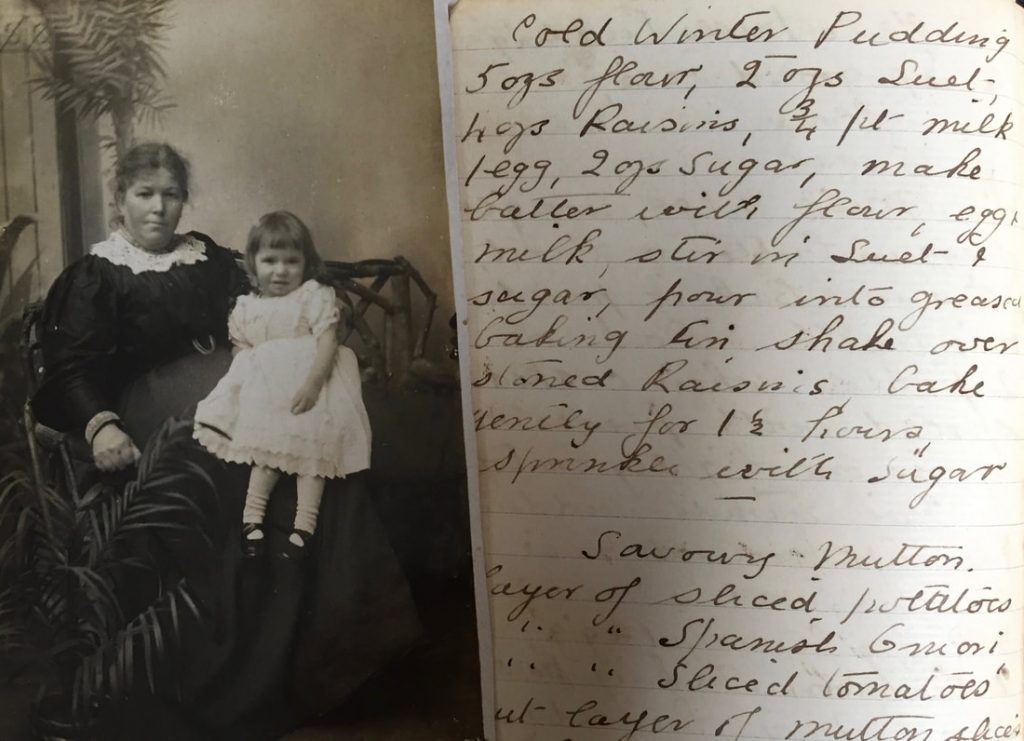 Cold Winter Pudding
5 ozs flour, 2 ozs Suet,
4 ozs Raisins, 3/4 pt milk
1 egg, 2 ozs Sugar, make
batter with flour, egg &
milk, stir in Suet &
sugar, pour into greased
baking tin, shake over
stoned Raisins, bake
gently for 1 1/2 hours,
sprinkle with Sugar
Savoury Mutton.
layer of sliced potatoes
" " Spanish Onion
" " Sliced tomatoes
layer of mutton slices